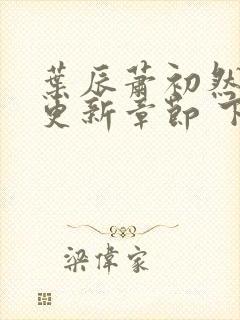 葉辰蕭初然
更新章節 下
梁偉家